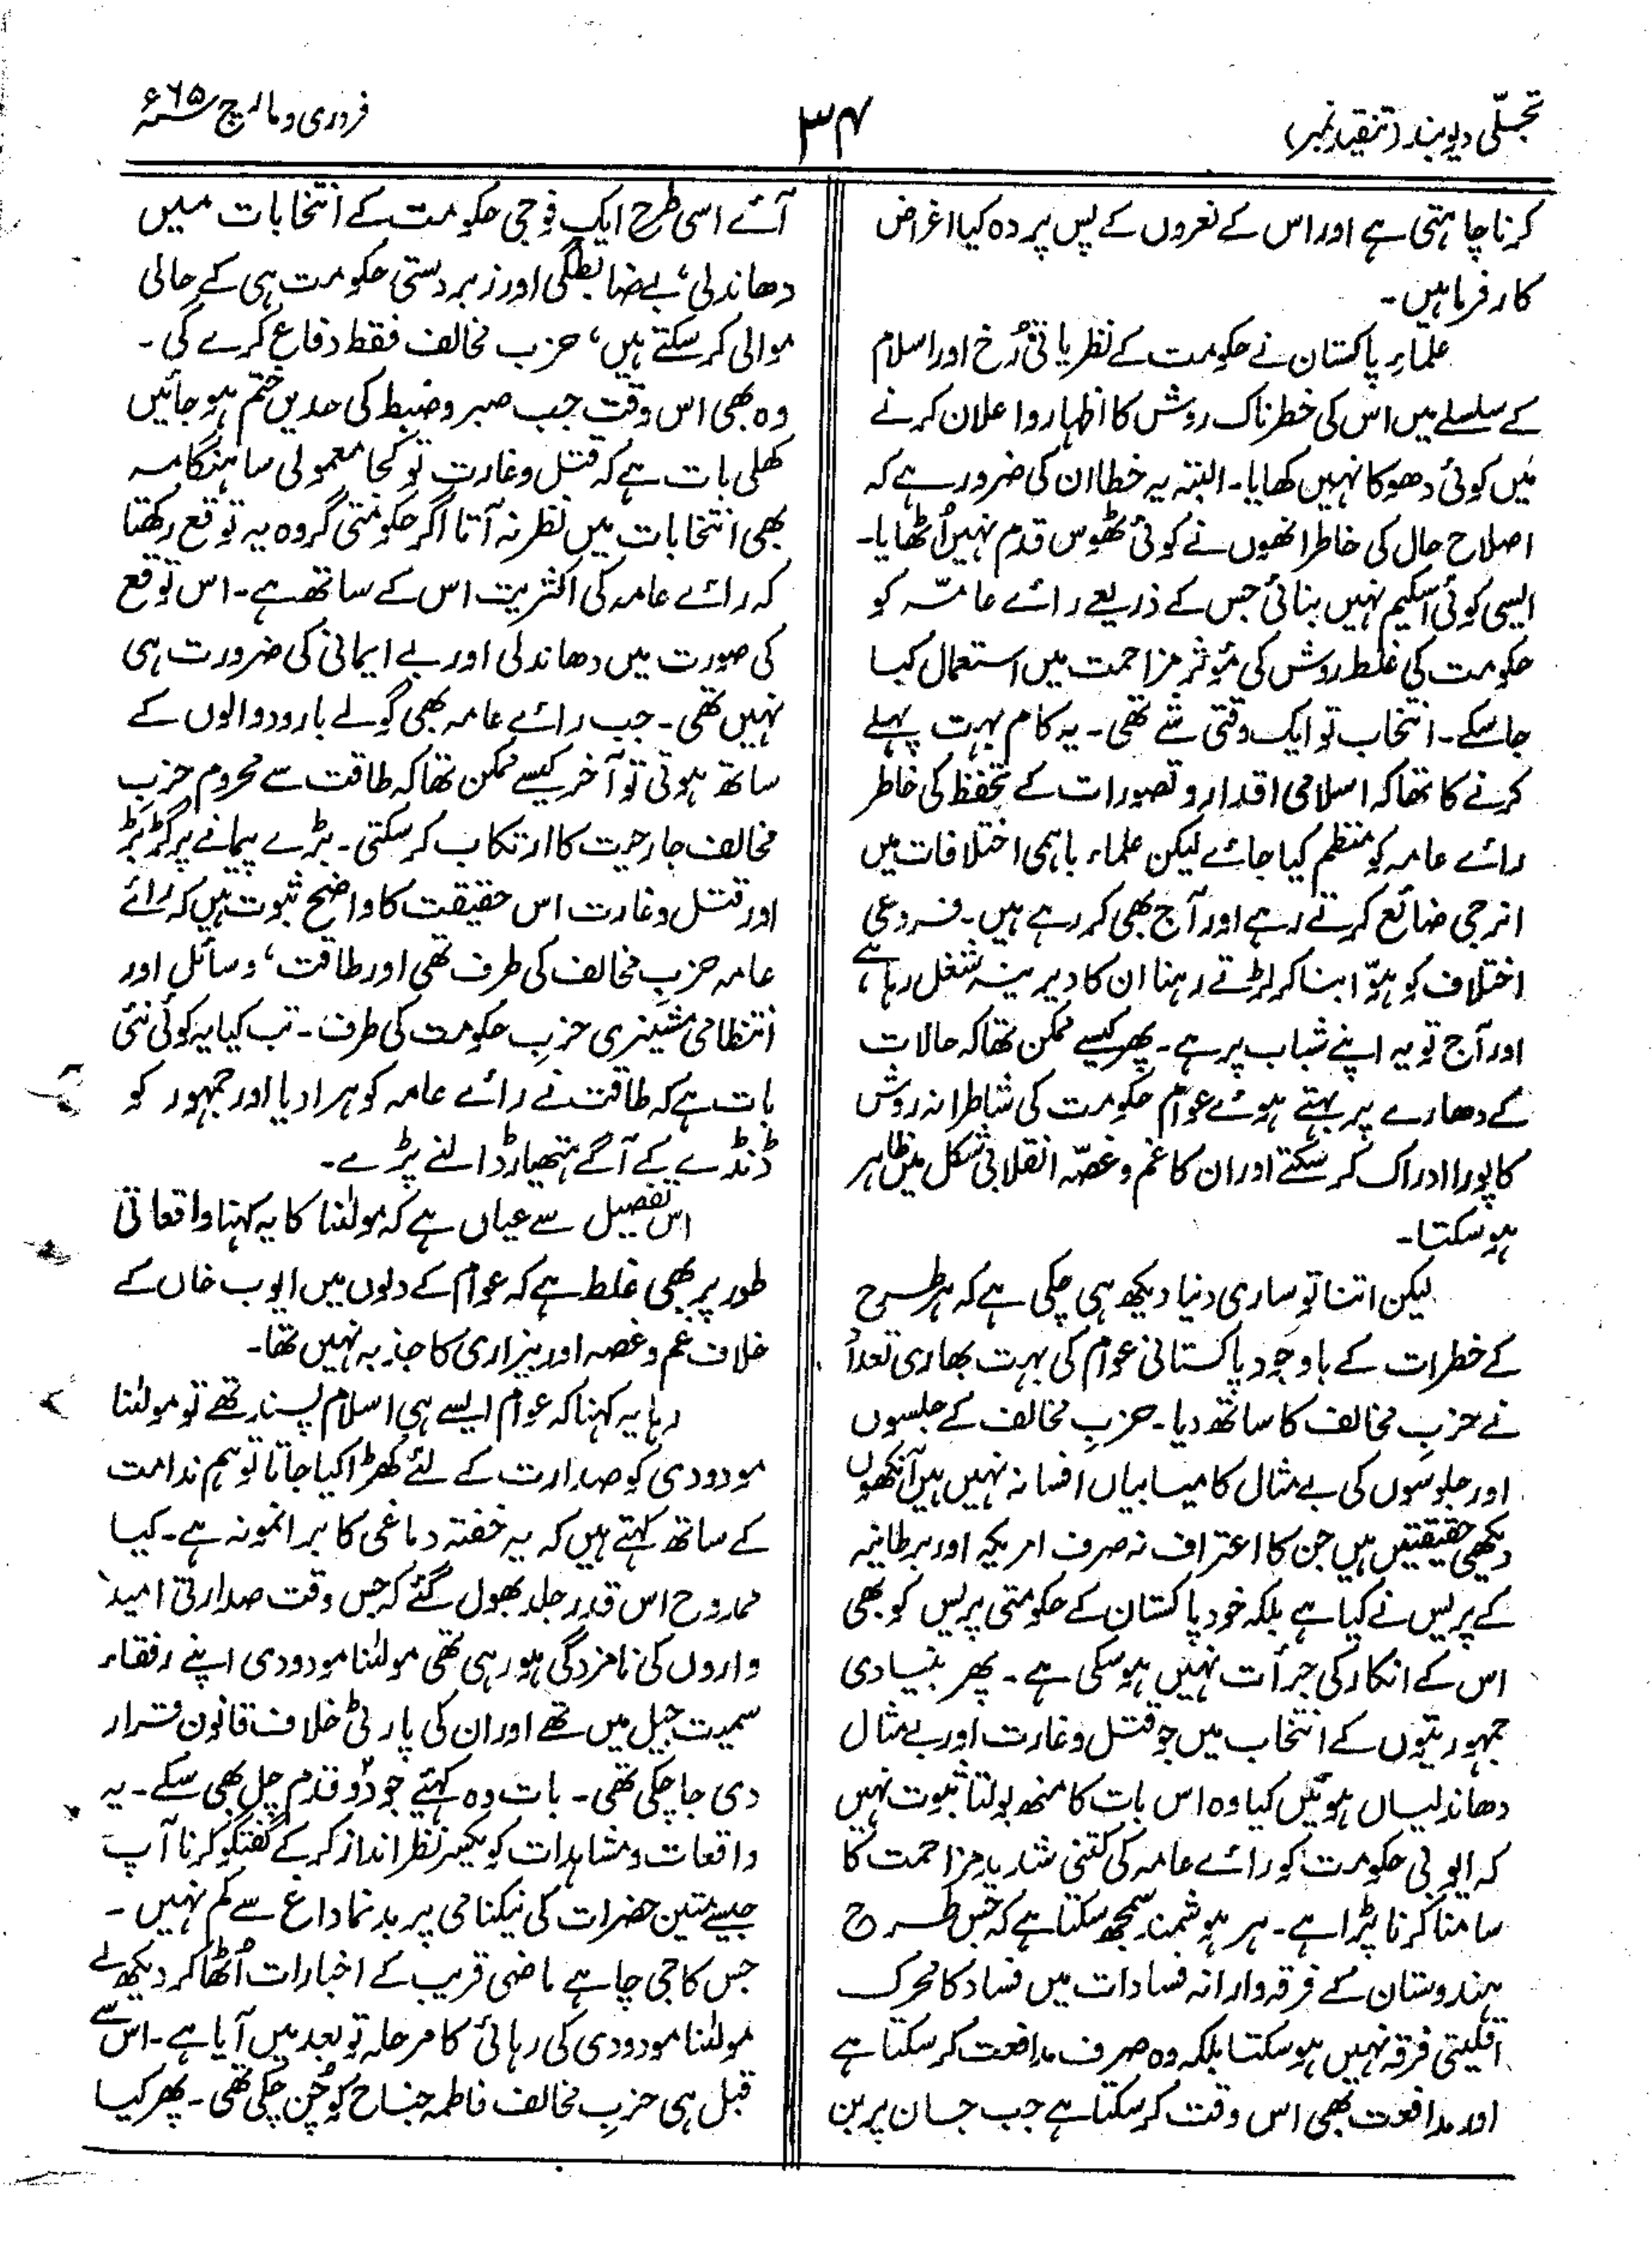 تجلّی دیوبند (تنقید نمبر)
۳۴
فروری و مارچ ۶۵ء
کرنا چاہتی ہے اور اس کے نعروں کے پس پردہ کیا اغراض
کارفرما ہیں۔
علماءِ پاکستان نے حکومت کے نظریاتی رُخ اور اسلام
کے سلسلے میں اس کی خطرناک روش کا اظہار و اعلان کرنے
میں کوئی دھوکا نہیں کھایا۔ البتہ یہ خطا ان کی ضرور ہے کہ
اصلاح حال کی خاطر انھوں نے کوئی ٹھوس قدم نہیں اُٹھایا۔
ایسی کوئی اسکیم نہیں بنائی جس کے ذریعے رائے عامّہ کو
حکومت کی غلط روش کی مؤثر مزاحمت میں استعمال کیا
جاسکے۔ انتخاب تو ایک وقتی شے تھی۔ یہ کام بہت پہلے
کرنے کا تھا کہ اسلامی اقدار و تصورات کے تحفظ کی خاطر
رائے عامہ کو منظم کیا جائے لیکن علماء باہمی اختلافات میں
انرجی ضائع کرتے رہے اور آج بھی کر رہے ہیں۔ فروعی
اختلاف کو ہوّا بنا کر لڑتے رہنا ان کا دیرینہ شغل رہا ہے،
اور آج تو یہ اپنے شباب پر ہے۔ پھر کیسے ممکن تھا کہ حالات
کے دھارے پر بہتے ہوئے عوام حکومت کی شاطرانہ روش
کا پورا ادراک کر سکتے اور ان کا غم و غصّہ انقلابی شکل میں ظاہر
ہو سکتا۔
لیکن اتنا تو ساری دنیا دیکھ ہی چکی ہے کہ ہر طرح
کے خطرات کے باوجود پاکستانی عوام کی بہت بھاری تعداد
نے حزبِ مخالف کا ساتھ دیا۔ حزبِ مخالف کے جلسوں
اور جلوسوں کی بے مثال کامیابیاں افسانہ نہیں ہیں آنکھوں
دیکھی حقیقتیں ہیں جن کا اعتراف نہ صرف امریکہ اور برطانیہ
کے پریس نے کیا ہے بلکہ خود پاکستان کے حکومتی پریس کو بھی
اس کے انکار کی جرأت نہیں ہو سکی ہے۔ پھر بنیادی
جمہوریتوں کے انتخاب میں جو قتل و غارت اور بے مثال
دھاندلیاں ہوئیں کیا وہ اس بات کا منھ بولتا ثبوت نہیں
کہ ایوبی حکومت کو رائے عامہ کی کتنی شدید مزاحمت کا
سامنا کرنا پڑا ہے۔ ہر ہوشمند سمجھ سکتا ہے کہ جس طرح
ہندوستان کے فرقہ وارانہ فسادات میں فساد کا محرک
اقلیتی فرقہ نہیں ہو سکتا بلکہ وہ صرف مدافعت کر سکتا ہے
اور مدافعت بھی اس وقت کر سکتا ہے جب جان پر بن
آئے اسی طرح ایک فوجی حکومت کے انتخابات میں
دھاندلی، بے ضابطگی اور زبردستی حکومت ہی کے حالی
موالی کر سکتے ہیں، حزب مخالف فقط دفاع کرے گی۔
وہ بھی اس وقت جب صبر و ضبط کی حدیں ختم ہو جائیں
کھلی بات ہے کہ قتل و غارت تو کجا معمولی سا ہنگامہ
بھی انتخابات میں نظر نہ آتا اگر حکومتی گروہ یہ توقع رکھتا
کہ رائے عامہ کی اکثریت اس کے ساتھ ہے۔ اس توقع
کی صورت میں دھاندلی اور بے ایمانی کی ضرورت ہی
نہیں تھی۔ جب رائے عامہ بھی گولے بارود والوں کے
ساتھ ہوتی تو آخر کیسے ممکن تھا کہ طاقت سے محروم حزبِ
مخالف جارحیت کا ارتکاب کر سکتی۔ بڑے پیمانے پر گڑبڑ
اور قتل و غارت اس حقیقت کا واضح ثبوت ہیں کہ رائے
عامہ حزبِ مخالف کی طرف تھی اور طاقت، وسائل اور
انتظامی مشینری حزبِ حکومت کی طرف۔ تب کیا یہ کوئی نئی
بات ہے کہ طاقت نے رائے عامہ کو ہرا دیا اور جمہور کو
ڈنڈے کے آگے ہتھیار ڈالنے پڑے۔
اس تفصیل سے عیاں ہے کہ مولٰنا کا یہ کہنا واقعاتی
طور پر بھی غلط ہے کہ عوام کے دلوں میں ایوب خاں کے
خلاف غم و غصہ اور بیزاری کا جذبہ نہیں تھا۔
رہا یہ کہنا کہ عوام ایسے ہی اسلام پسند تھے تو مولٰنا
مودودی کو صدارت کے لئے کھڑا کیا جاتا تو ہم ندامت
کے ساتھ کہتے ہیں کہ یہ خفتہ دماغی کا برا نمونہ ہے۔ کیا
ممدوح اس قدر جلد بھول گئے کہ جس وقت صدارتی امید
واروں کی نامزدگی ہو رہی تھی مولٰنا مودودی اپنے رفقاء
سمیت جیل میں تھے اور ان کی پارٹی خلاف قانون قرار
دی جا چکی تھی۔ بات وہ کہئے جو دو قدم چل بھی سکے۔ یہ
واقعات و مشاہدات کو یکسر نظر انداز کر کے گفتگو کرنا آپ
جیسے متین حضرات کی نیکنامی پر بدنما داغ سے کم نہیں۔
جس کا جی چاہے ماضی قریب کے اخبارات اُٹھا کر دیکھ لے
مولٰنا مودودی کی رہائی کا مرحلہ تو بعد میں آیا ہے۔ اس سے
قبل ہی حزبِ مخالف فاطمہ جناح کو چُن چکی تھی۔ پھر کیا